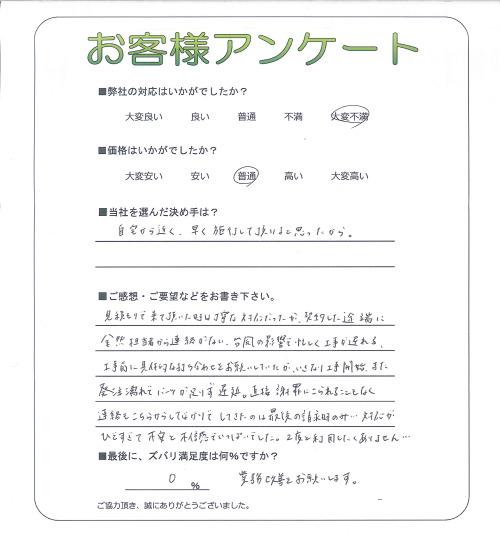 お客様アンケート
■弊社の対応はいかがでしたか？
大変良い 良い 普通 不満 大変不満
■価格はいかがでしたか？
大変安い 安い 普通 高い 大変高い
■当社を選んだ決め手は？
自宅から近く、早く施工して頂けると思ったから。
■ご感想・ご要望などをお書き下さい。
見積もりで来て頂いた時は丁寧な対応だったが、契約した途端に
全然担当者から連絡がない、台風の影響で忙しく工事が遅れる、
工事前に具体的な打ち合わせをお願いしていたが、いきなり工事開始、また
発注漏れでパーツが足りず遅延。直接謝罪に来られることもなく
連絡もこちらからしてばかりで してきたのは最後の請求時のみ… 対応が
ひどすぎて不安と不信感でいっぱいでした。2度と利用したくありません…
■最後に、ズバリ満足度は何％ですか？
0 % 業務改善をお願いします。
ご協力頂き、誠にありがとうございました。